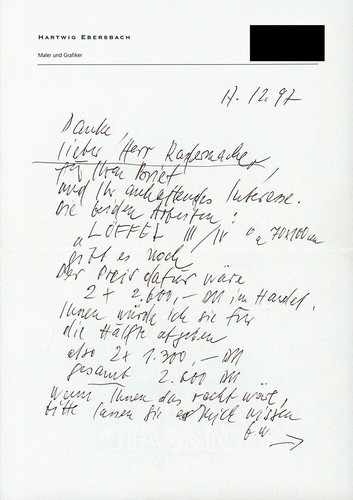 HARTWIG EBERSBACH
Maler und Grafiker
17.12.97
Danke,
lieber Herr Radermacher,
für Ihren Brief
und Ihr anhaltendes Interesse.
Die beiden Arbeiten:
"LÖFFEL III/IV" a 70x100cm
gibt es noch
Der Preis dafür wäre
2 x 2.600,- DM im Handel.
Ihnen würde ich sie für
die Hälfte abgeben
also 2 x 1.300,- DM
gesamt 2.600 DM
wenn Ihnen das recht wäre,
bitte lassen Sie es mich wissen
b.w.